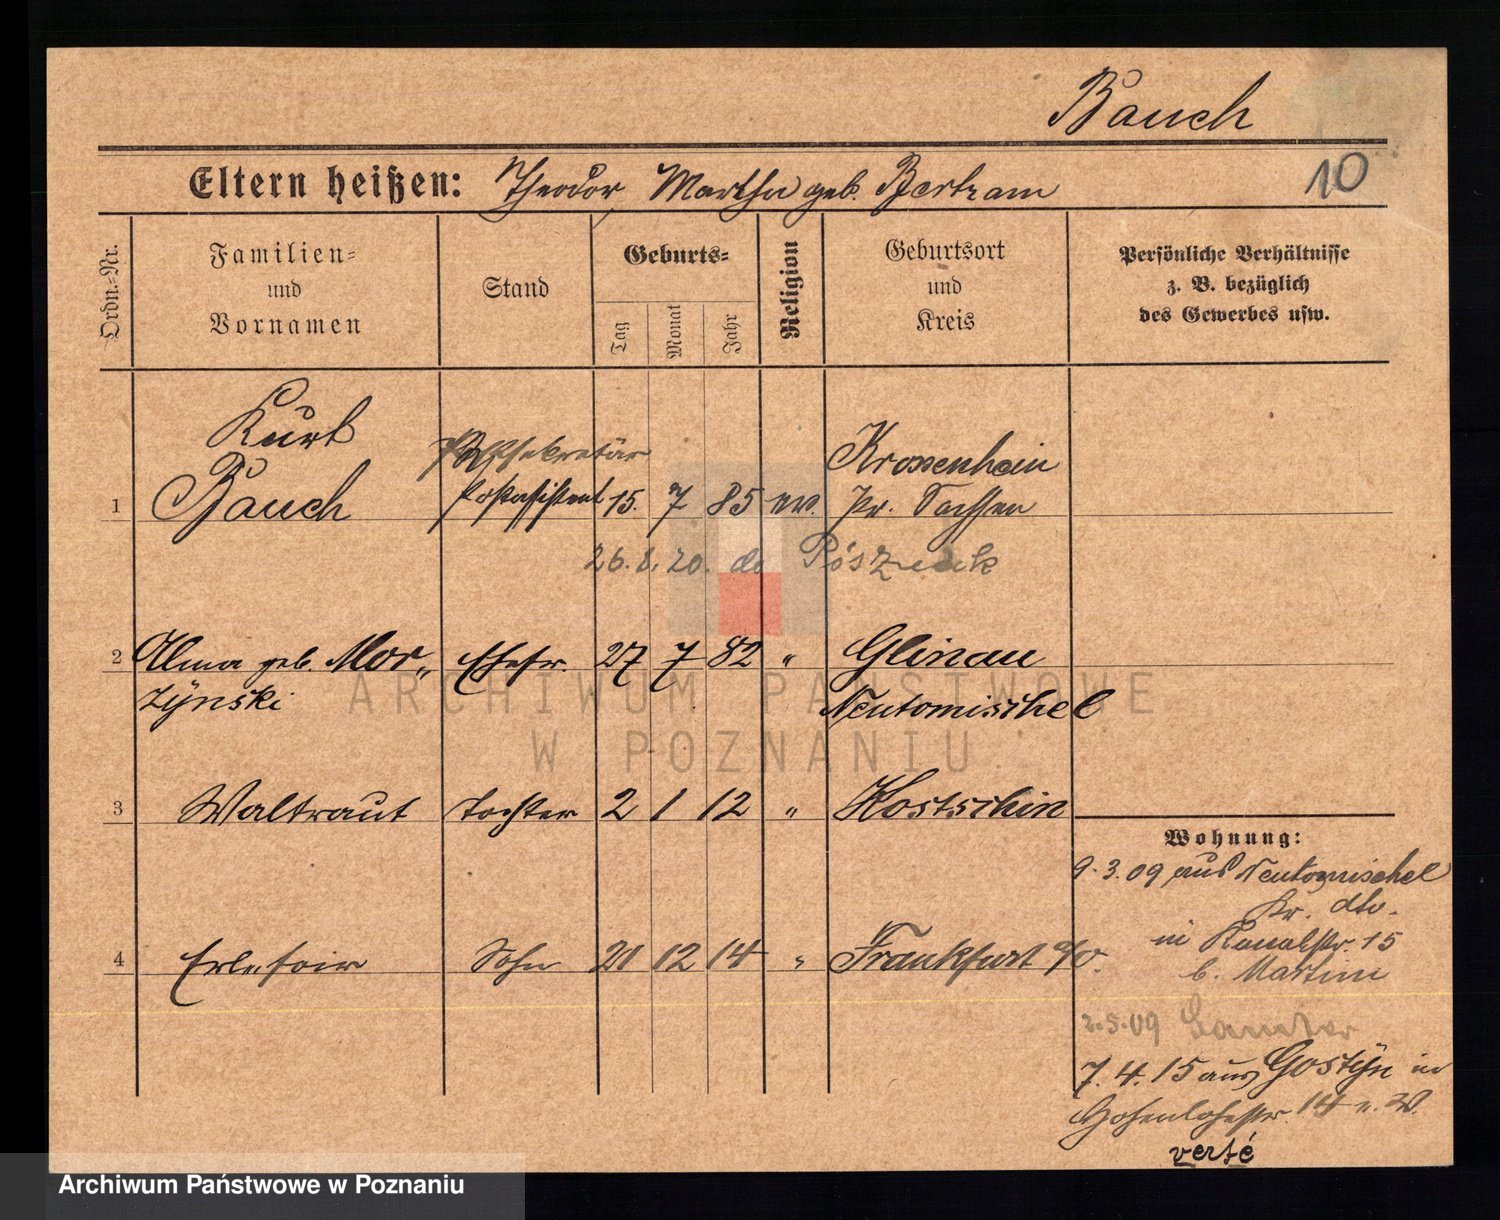 Bauch
Eltern heißen: Theodor, Martha geb. Bertram
10
Ordn.-Nr.
Familien-
und
Vornamen
Stand
Geburts-
Tag
Monat
Jahr
Religion
Geburtsort
und
Kreis
Persönliche Verhältnisse
z. B. bezüglich
des Gewerbes usw.
Kurt
Postsekretär
Kroxenhain
1 Bauch Postassistent 15. 7 85 ev. Pr. Sachsen
26.8.20.
2 Alma geb. Mor- Ehefr. 27 7 82 " Glinau
zÿnski Neutomischel
3 Waltraut Tochter 2 1 12 " Kostschin
Wohnung:
9.3.09 aus Neutomischel
Kr. dto.
in Kanalstr. 15
b. Martini
4 Sohn 21 12 14 " Frankfurt a/O.
2.5.09
7.4.15 aus Gostÿn in
Hohenlohestr. 14
verté
ARCHIWUM PAŃSTWOWE
W POZNANIU
Archiwum Państwowe w Poznaniu